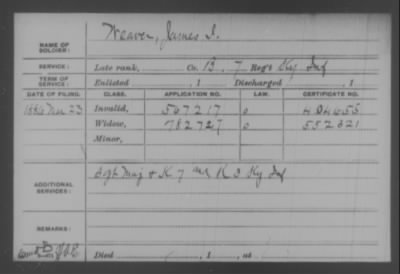 NAME OF SOLDIER: Weaver, James I.
SERVICE: Late rank, Co. B, 7 Reg't Ky Inf
TERM OF SERVICE: Enlisted , 1 Discharged , 1
DATE OF FILING. CLASS. APPLICATION NO. LAW. CERTIFICATE NO.
1886 Mar 23 Invalid, 567217 0 404655
Widow, 782727 0 552321
Minor,
ADDITIONAL SERVICES: Sgt Maj & K 7 and K 3 Ky Inf
REMARKS:
Died , 1 , at